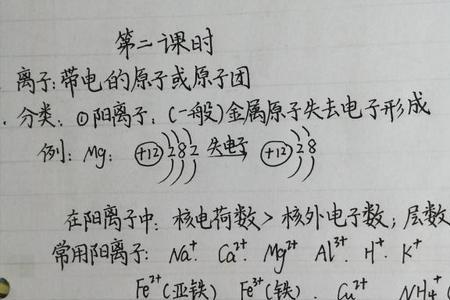 第二课时
离子:带电的原子或原子团
分类:①阳离子:(一般)金属原子失去电子形成
例:Mg: +12 2 8 2 失电子 +12 2 8
在阳离子中:核电荷数>核外电子数;层数
常用阳离子: Na⁺ Ca²⁺ Mg²⁺ Al³⁺ H⁺ K⁺
Fe²⁺(亚铁) Fe³⁺(铁) Cu²⁺ NH₄⁺(